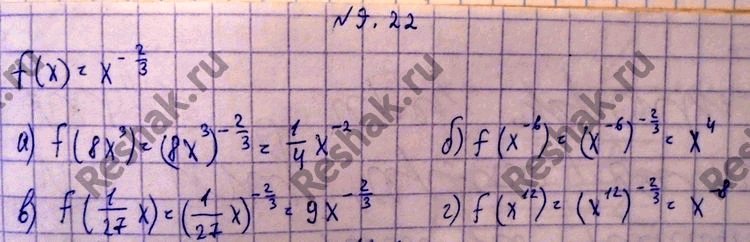 №9.22
f(x) = x^{-2/3}
а) f(8x³) = (8x³)^{-2/3} = 1/4 x^{-2}   б) f(x^{-6}) = (x^{-6})^{-2/3} = x^4
в) f(1/27 x) = (1/27 x)^{-2/3} = 9x^{-2/3}   г) f(x^{12}) = (x^{12})^{-2/3} = x^{-8}
Reshak.ru
Reshak.ru
Reshak.ru
Reshak.ru